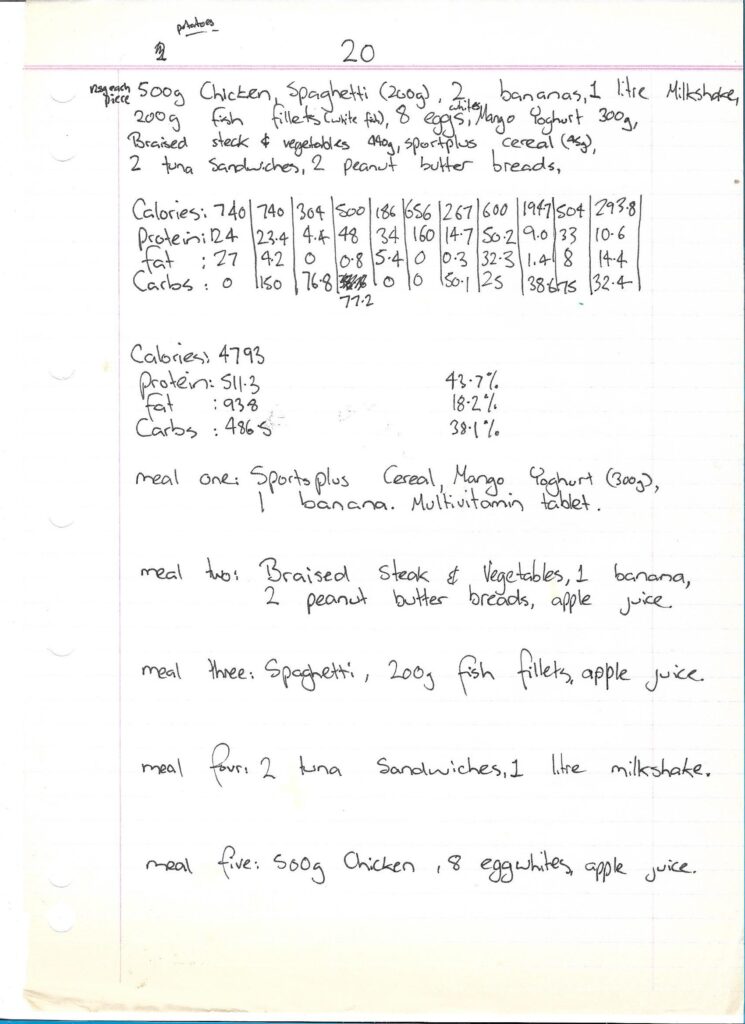 potatoes
2 20
125g each piece 500g Chicken, Spaghetti (200g), 2 bananas, 1 litre Milkshake,
200g fish fillets (white fish), 8 eggs whites, Mango Yoghurt 300g,
Braised steck & vegetables 440g, sportplus cereal (45g),
2 tuna Sandwiches, 2 peanut butter breads,
Calories: 740 | 740 | 304 | 500 | 186 | 656 | 267 | 600 | 194.7 | 504 | 293.8
Protein: 124 | 23.4 | 4.4 | 48 | 34 | 160 | 14.7 | 50.2 | 9.0 | 33 | 10.6
fat : 27 | 4.2 | 0 | 0.8 | 5.4 | 0 | 0.3 | 32.3 | 1.4 | 8 | 14.4
Carbs : 0 | 150 | 76.8 | 0 | 0 | 50.1 | 25 | 38.6 | 75 | 32.4
77.2
Calories: 4793
Protein: 511.3 43.7%
fat : 93.8 18.2%
Carbs : 486.5 38.1%
meal one: Sportsplus Cereal, Mango Yoghurt (300g),
1 banana. Multivitamin tablet.
meal two: Braised Steak & Vegetables, 1 banana,
2 peanut butter breads, apple juice.
meal three: Spaghetti, 200g fish fillets, apple juice.
meal four: 2 tuna Sandwiches, 1 litre milkshake.
meal five: 500g Chicken, 8 eggwhites, apple juice.